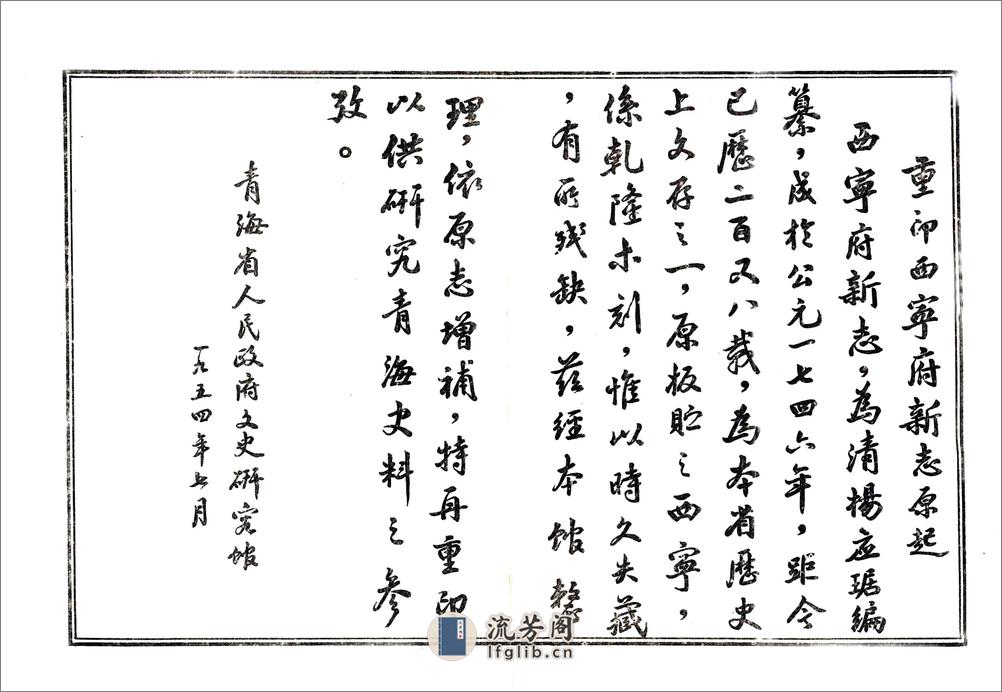 重印西寧府新志原起
西寧府新志，為清楊应琚編
纂，成於公元一七四六年，距今
已歷二百又八載，為本省歷史
上文存之一，原板貯之西寧，
係乾隆木刻，惟以時久失藏
，有所殘缺，茲經本館整
理，依原志增補，特再重印
以供研究青海史料之参
攷。
青海省人民政府文史研究館
一九五四年七月
流芳阁
lfglib.cn